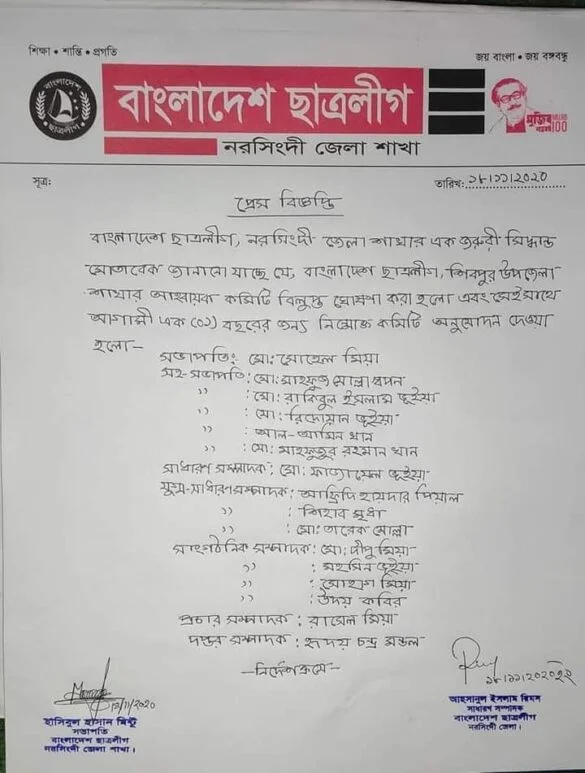 শিক্ষা • শান্তি • প্রগতি
জয় বাংলা • জয় বঙ্গবন্ধু
বাংলাদেশ
ছাত্রলীগ
বাংলাদেশ ছাত্রলীগ
মুজিব 100
নরসিংদী জেলা শাখা
সূত্র:
তারিখ: ১৮।১১।২০২০
প্রেস বিজ্ঞপ্তি
বাংলাদেশ ছাত্রলীগ, নরসিংদী জেলা শাখার এক জরুরী সিদ্ধান্ত
মোতাবেক জানানো যাচ্ছে যে, বাংলাদেশ ছাত্রলীগ, শিবপুর উপজেলা
শাখার আহবায়ক কমিটি বিলুপ্ত ঘোষণা করা হলো এবং সেই সাথে
আগামী এক (০১) বছরের জন্য নিম্নোক্ত কমিটি অনুমোদন দেওয়া
হলো–
সভাপতি: মো: সোহেল মিয়া
সহ-সভাপতি: মো: মাহফুজ মোল্লা স্বপন
,, : মো: রাকিবুল ইসলাম ভূইয়া
,, : মো: রিদোয়ান ভূইয়া
,, : আল-আমিন খান
,, : মো: মাহফুজুর রহমান খান
সাধারণ সম্পাদক: মো: ফাত্যায়েল ভূইয়া
যুগ্ম-সাধারণ সম্পাদক: আফ্রিদি হায়দার পিয়াল
,, : শিহাব মৃধা
,, : মো: তারেক মোল্লা
সাংগঠনিক সম্পাদক: মো: দীপু মিয়া
,, : মহসিন ভূইয়া
,, : সোহাগ মিয়া
,, : উদয় কবির
প্রচার সম্পাদক : রাসেল মিয়া
দপ্তর সম্পাদক : হৃদয় চন্দ্র মন্ডল
–নির্দেশক্রমে–
হাসিবুল হাসান মিন্টু
সভাপতি
বাংলাদেশ ছাত্রলীগ
নরসিংদী জেলা শাখা।
আহসানুল ইসলাম রিমন
সাধারণ সম্পাদক
বাংলাদেশ ছাত্রলীগ
নরসিংদী জেলা।